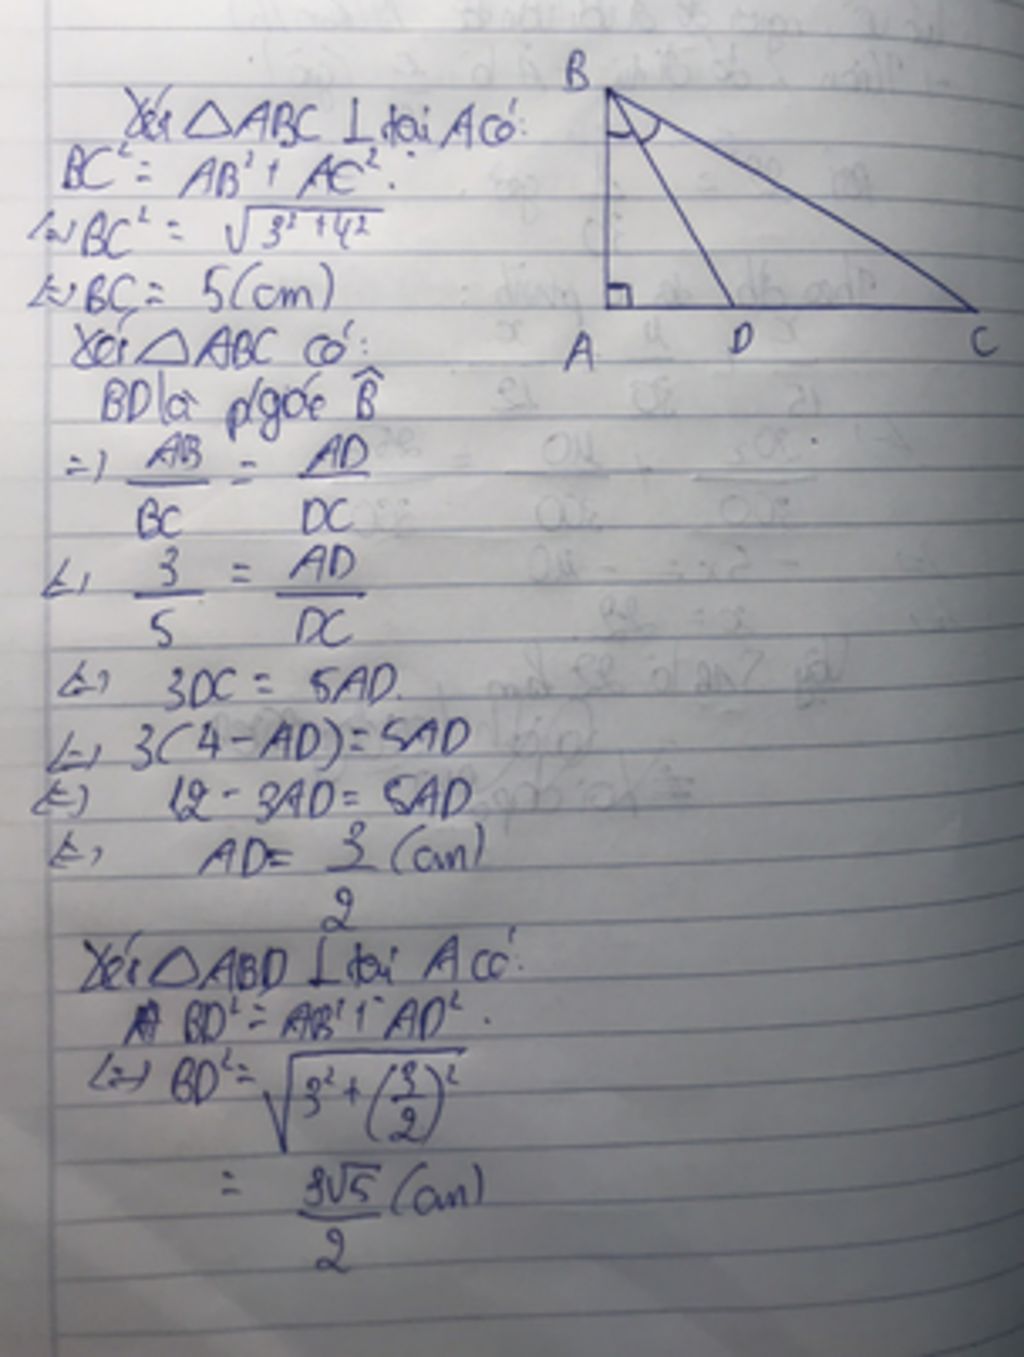 Xét △ABC ⊥ tại A có:
BC² = AB² + AC².
<=> BC² = √3² + 4²
<=> BC = 5 (cm)
Xét △ABC có:
BD là p/góc B̂
=> AB/BC = AD/DC
<=> 3/5 = AD/DC
<=> 3DC = 5AD.
<=> 3(4 - AD) = 5AD
<=> 12 - 3AD = 5AD
<=> AD = 3/2 (cm)
Xét △ABD ⊥ tại A có:
BD² = AB² + AD².
<=> BD² = √3² + (3/2)²
= 3√5/2 (cm)
B
A D C